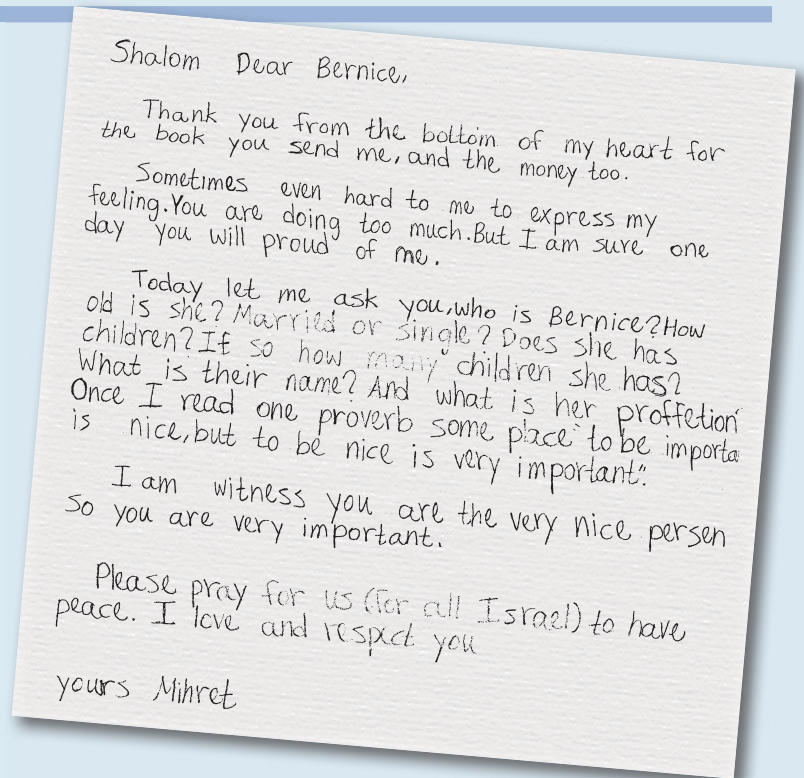 Shalom Dear Bernice,
Thank you from the bottom of my heart for
the book you send me, and the money too.
Sometimes even hard to me to express my
feeling. You are doing too much. But I am sure one
day you will proud of me.
Today let me ask you, who is Bernice? How
old is she? Married or single? Does she has
children? If so how many children she has?
What is their name? And what is her proffetion
Once I read one proverb some place "to be importa
is nice, but to be nice is very important".
I am witness you are the very nice persen
So you are very important.
Please pray for us (for all Israel) to have
peace. I love and respect you
yours Mihret